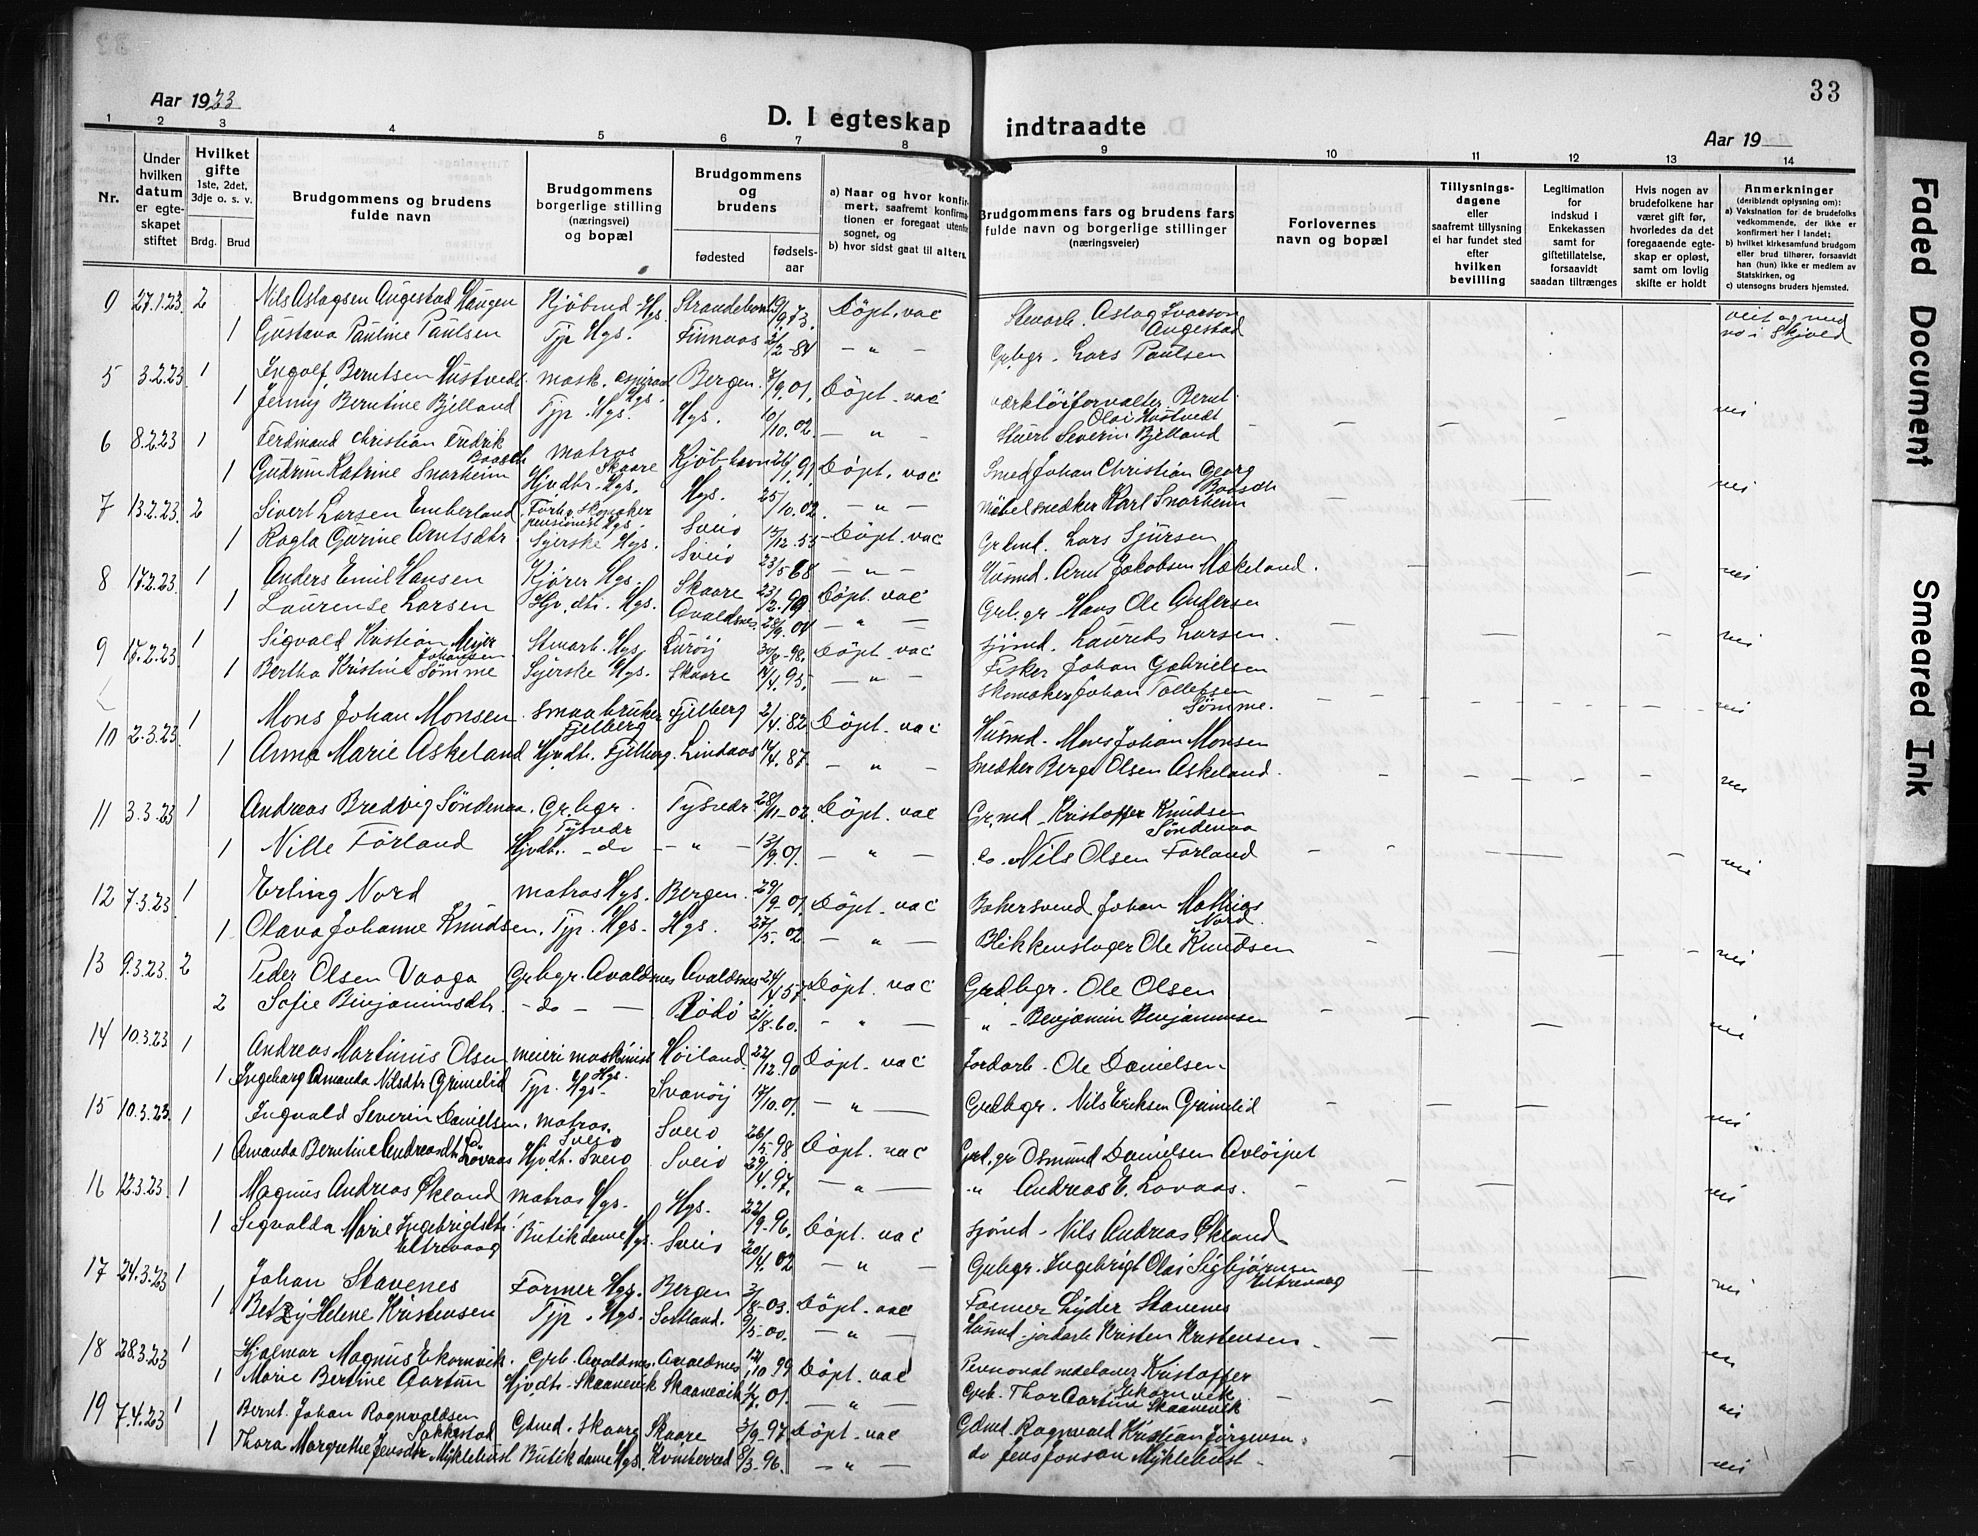 33
Aar 1923
D. I egteskap indtraadte
Aar 19
1 2 3 4 5 6 7 8 9 10 11 12 13 14
Nr.
Under hvilken datum er egteskapet stiftet
Hvilket gifte 1ste, 2det, 3dje o. s. v.
Brdg. Brud
Brudgommens og brudens fulde navn
Brudgommens borgerlige stilling (næringsvei) og bopæl
Brudgommens og brudens
fødested
fødsels-aar
a) Naar og hvor konfirmert, saafremt konfirmationen er foregaat utenfor sognet, og
b) hvor sidst gaat til alters.
Brudgommens fars og brudens fars fulde navn og borgerlige stillinger (næringsveier)
Forlovernes navn og bopæl
Tillysningsdagene eller saafremt tillysning ei har fundet sted efter hvilken bevilling
Legitimation for indskud i Enkekassen samt for giftetillatelse, forsaavidt saadan tiltrænges
Hvis nogen av brudefolkene har været gift før, hvorledes da det foregaaende egteskap er opløst, samt om lovlig skifte er holdt
Anmerkninger (deriblandt oplysning om):
a) Vaksination for de brudefolks vedkommende, der ikke er konfirmert her i landet;
b) hvilket kirkesamfund brudgom eller brud tilhører, forsaavidt han (hun) ikke er medlem av Statskirken, og
c) utensogns bruders hjemsted.
27.1.23. 2 Nils Aslagsen Augestad Haugen Hgs. 19/9.73. Döpt. vac Aslag Ivarson Augestad
1 Gustava Pauline Paulsen Typ Hgs. Finnaas 2/2-84 — " — Grbgr. Lars Paulsen
5 3.2.23 1 Ingolf Berntsen Hustvedt mask. aspirant Hgs. Bergen 7/9.01. Döpt. vac værktöiforvalter Bernt Olai Hustvedt nei
1 Jenny Berntine Bjelland Typ. Hgs. Hgs. 10/10.02 — " — Severin Bjelland
6 8.2.23 1 Ferdinand Christian Fredrik Baasch matros Skaare Kjöbhavn 26/1.91. Döpt. vac Smed Johan Christian Georg Baasch nei
1 Gudrun Katrine Snorheim Hjvdtr. Hgs. Hgs. 25/10.02. — " — Möbelsnedker Karl Snorheim
7 13.2.23. 2 Sivert Larsen Emberland Förh. skomaker pensionist Hgs. Sveio 17/12.53 Döpt. vac Grdmd. Lars Sjursen nei
1 Ragla Gurine Arntsdtr Syerske Hgs. Sveio 23/5 68 — " — Husmd. Arnt Jakobsen Mækeland.
8 17.2.23 1 Anders Emil Hansen Kjører Hgs. Skaare 23/2.99 Döpt. vac Grbgr Hans Ole Andersen nei
1 Laurense Larsen Hjv.dtr. Hgs. Avaldsnes. 28/9.04 — " — sjömd. Laurits Larsen.
9 17.2.23 1 Sigvald Kristian Meyer Johansen Stuarb. Hgs Luröy 30/8-98. Döpt. vac Fisker Johan Gabrielsen nei
1 Bertha Kristine Sömme Syerske Hgs. Skaare 14/4.95. — " — Skomaker Johan Tollefsen Sömme.
10 2.3.23 1 Mons Johan Monsen Smaabruker Fjelberg Fjelberg 2/4.82 Döpt. vac Husmd. Mons Johan Monsen nei
1 Anna Marie Askeland Hjvdtr. Fjelberg. Lindaas 14/4.87. — " — Snedker Berge Olsen Askeland.
11 3.3.23 1 Andreas Bredvig Söndenaa. Gr.bgr. Tysvær Tysvær 28/11-02. Döpt. vac Gr.md. Kristoffer Knudsen Söndenaa nei
1 Nille Förland Hjvdt. - do — " — 13/9.01. — " — Do. Nils Olsen Förland
12 7.3.23 1 Erling Nord matros Hgs. Bergen. 29/9-01. Döpt. vac Bakersvend Johan Mathias Nord. nei
1 Olava Johanne Knudsen. Typ. Hgs. Hgs. 27/5.02 — " — Blikkenslager Ole Knudsen
13 9.3.23. 2 Peder Olsen Vaaga Grbgr. Avaldsnes Avaldsnes 24/4 57. Döpt. vac Grdbgr. Ole Olsen nei
2 Sofie Binjaminsdtr. - do — Rödö 21/8-60. — " — " - Benjamin Benjaminsen
14 10.3.23 1 Andreas Martinius Olsen meieri maskinist Hgs. Höiland 22/12.90 Döpt. vac Jordarb. Ole Danielsen. nei
1 Ingeborg Amanda Nilsdtr Grimelid Typ. Hgs. Svanöy 17/10.01. — " — Grdbgr. Nils Eriksen Grimelid
15 10.3.23. 1 Ingvald Severin Danielsen. matros. Sveio Sveio 26/5.98 Döpt. vac Osmund Danielsen Avlöipet nei
1 Amanda Berntine Andreasdtr Lovaas Hjvdt. Sveio Sveio 29/4.97. — " — " Andreas E. Lovaas.
16 12.3.23 1 Magnus Andreas Økland matros Hgs. Hgs. 22/9.96. Döpt. vac sjömd. Nils Andreas Økland nei
1 Sigvalda Marie Ingebrigtsdtr. Eltrevaag Butikdame Hgs. Sveio 20/4.02 — " — Grbgr. Ingebrigt Olai Sigbjörnsen Eltrevaag
17 24.3.23 1 Johan Stavenes Former Hgs. Bergen 3/8-03. Döpt. vac Former Lyder Stavenes nei
1 Betzy Helene Kristensen Typ. Hgs. Sortland. 9/5-00. — " — Husmd. jordarb Kristen Kristensen.
18 28.3.23 1 Hjalmar Magnus Ekornvik. Grb. Avaldsnes. Avaldsnes 12/10 99 Döpt. vac Kristoffer Ekornvik nei
1 Marie Bertine Aartun Hjvdtr. Skaanevik Skaanevik 1/7.01. — " — Grb. Thor Aartun Skaanevik
19 7.4.23 1 Bernt Johan Ragnvaldsen Sakkestad Gdmd. Skaare Skaare 3/9-97. Döpt. vac Gdmd. Ragnvald Kristian Jörgensen. nei
1 Thora Margrethe Jensdtr Myklebust Butikdame Hgs. Kvinherred 8/3-96. — " — do Jens Jonson Myklebust
Faded Document
Smeared Ink